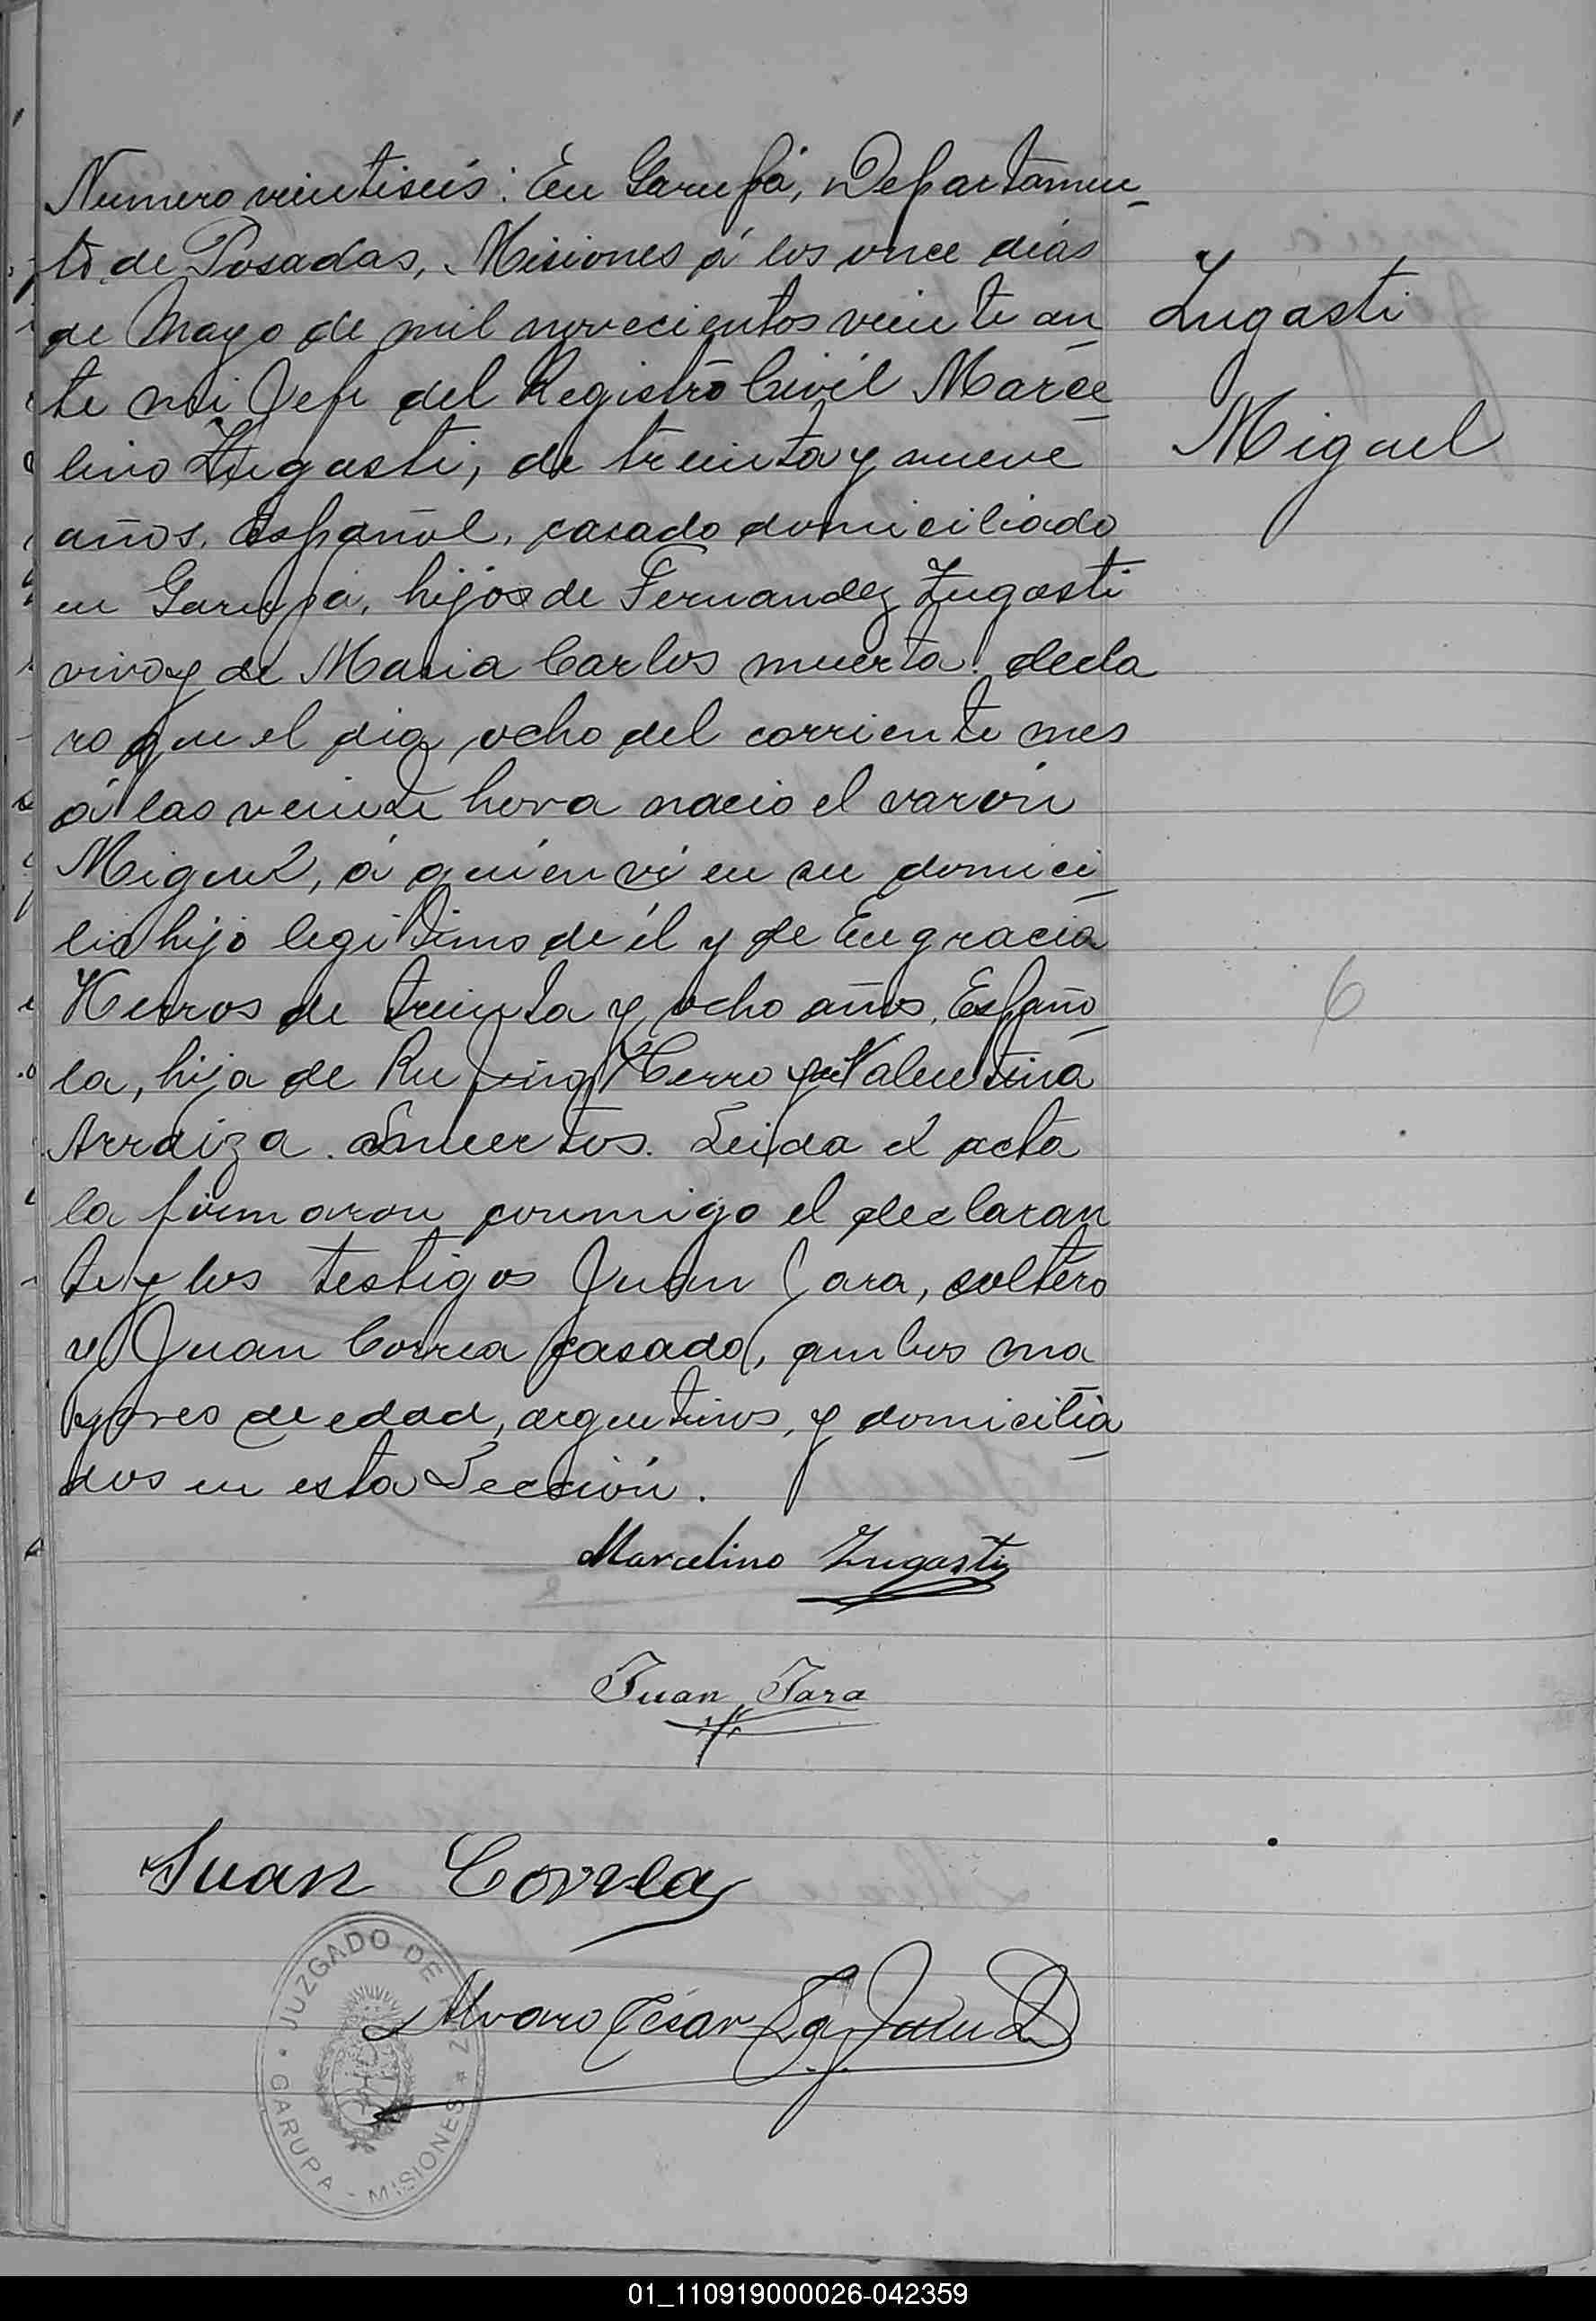 Numero veintiseis: En Garupá, Departamen-
to de Posadas, Misiones á los once dias
de Mayo de mil novecientos veinte an-
te mi Jefe del Registro Civil Marce-
lino Zugasti, de treinta y nueve
años, Español, casado domiciliado
en Garupá, hijo de Fernandez Zugasti
vivo y de Maria Carlos muerta: decla
ro que el dia ocho del corriente mes
á las veinte hora nacio el varón
Miguel, á quien ví en su domici-
lio hijo legitimo de él y de Engracia
Herros de treinta y ocho años, Españo-
la, hija de Rufino Herro y de Valentina
Arraiza muertos. Leida el acta
la firmaron conmigo el declaran
te y los testigos Juan Jara, soltero
y Juan Correa casado, ambos ma
yores de edad, argentinos, y domicilia-
dos en esta Sección.
Zugasti
Miguel
6
Marcelino Zugasti
Juan Jara
Juan Correa
Alvaro Cesar
JUZGADO DE PAZ
GARUPA - MISIONES
01_110919000026-042359